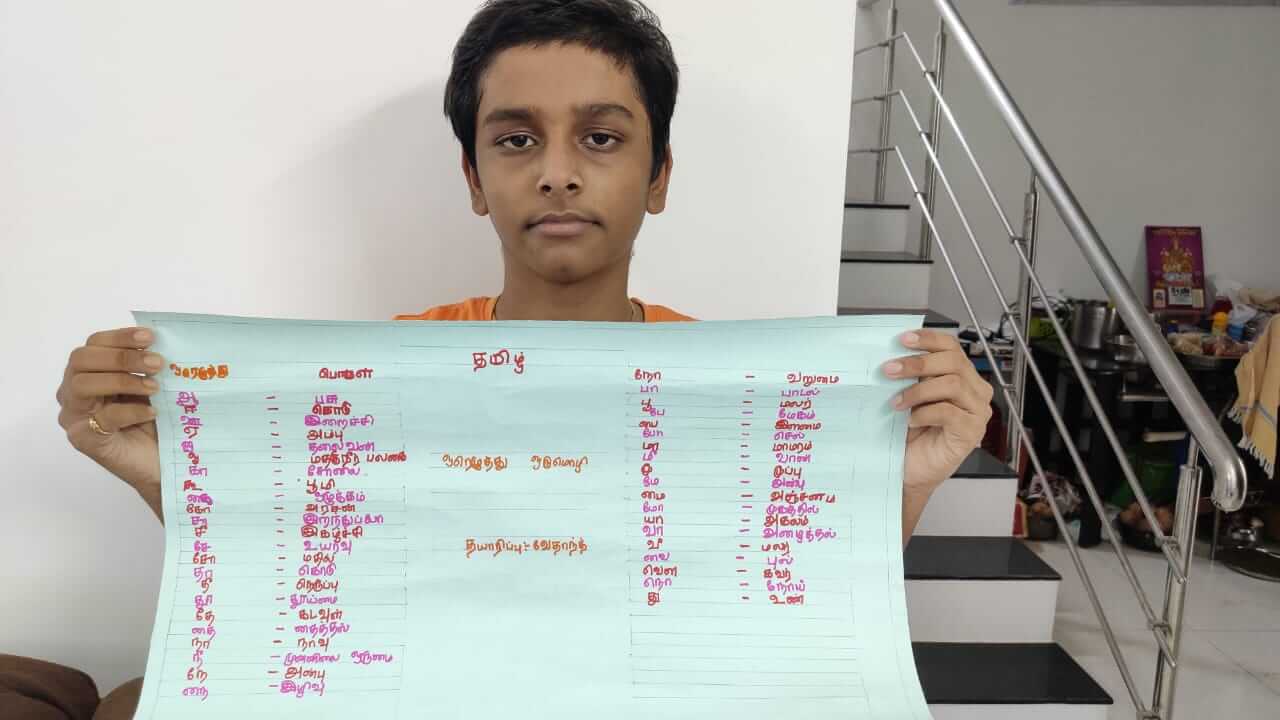 தமிழ்
ஓரெழுத்து பொருள்
ஆ - பசு
ஈ - கொடு
ஊ - இறைச்சி
ஏ - அம்பு
ஐ - தலைவன்
கா - சோலை
கூ - பூமி
கை - ஒழுக்கம்
கோ - அரசன்
சா - இறந்துபோ
சீ - இகழ்ச்சி
சே - உயர்வு
சோ - மதில்
தா - கொடு
தீ - நெருப்பு
தூ - தூய்மை
தே - கடவுள்
தை - தைத்தல்
நா - நாவு
நீ - முன்னிலை ஒருமை
நே - அன்பு
நை - இழிவு
ஓரெழுத்து ஒருமொழி
தயாரிப்பு:- வேதாந்த்
நோ - வறுமை
பா - பாடல்
பூ - மலர்
பே - மேகம்
பை - இளமை
போ - செல்
மா - மாமரம்
மீ - வான்
மே - அன்பு
மை - அஞ்சனம்
மோ - முகத்தல்
யா - அகலம்
வா - அழைத்தல்
வீ - மலர்
வை - புல்
வெள - கவர்
நொ - நோய்
து - உண்